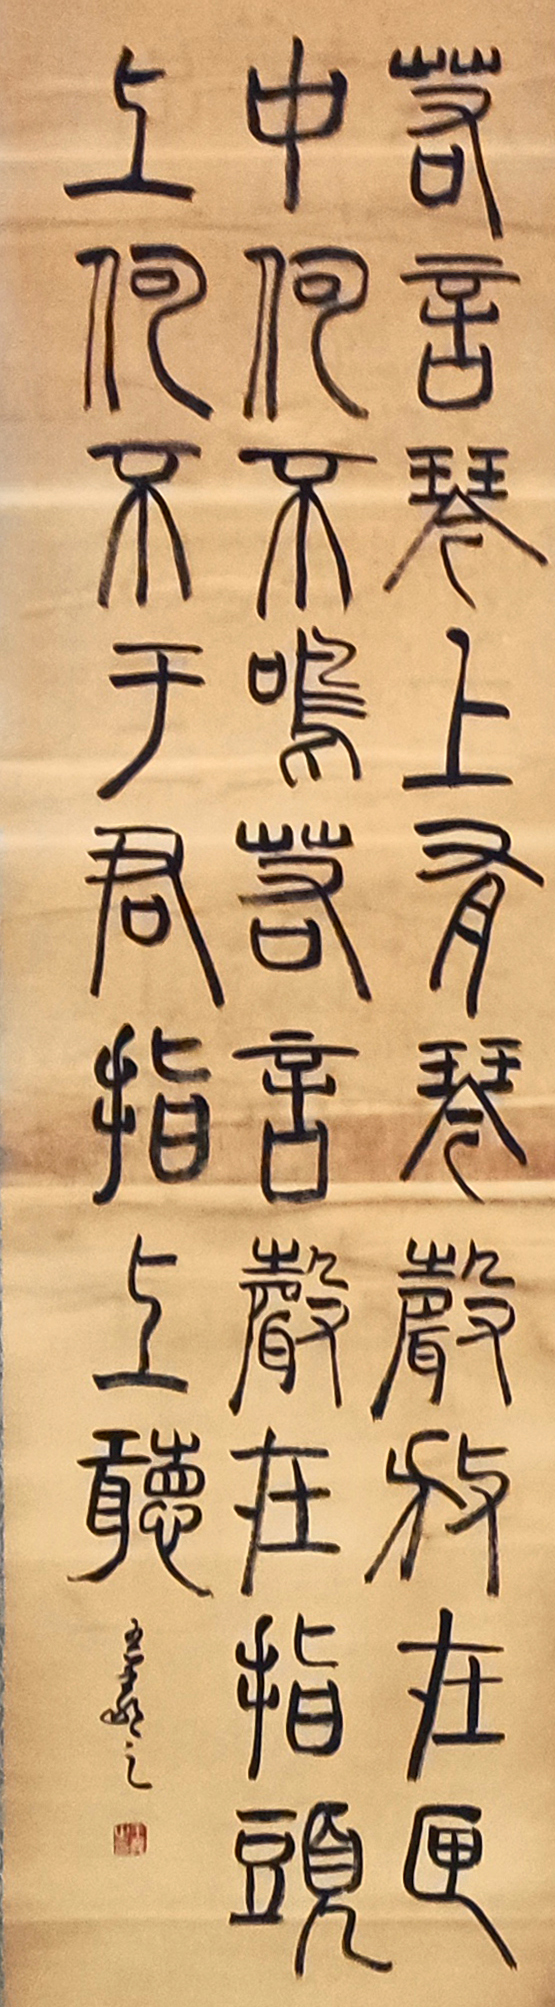 若言琴上有琴聲放在匣
中何不鳴若言聲在指頭
上何不于君指上聽